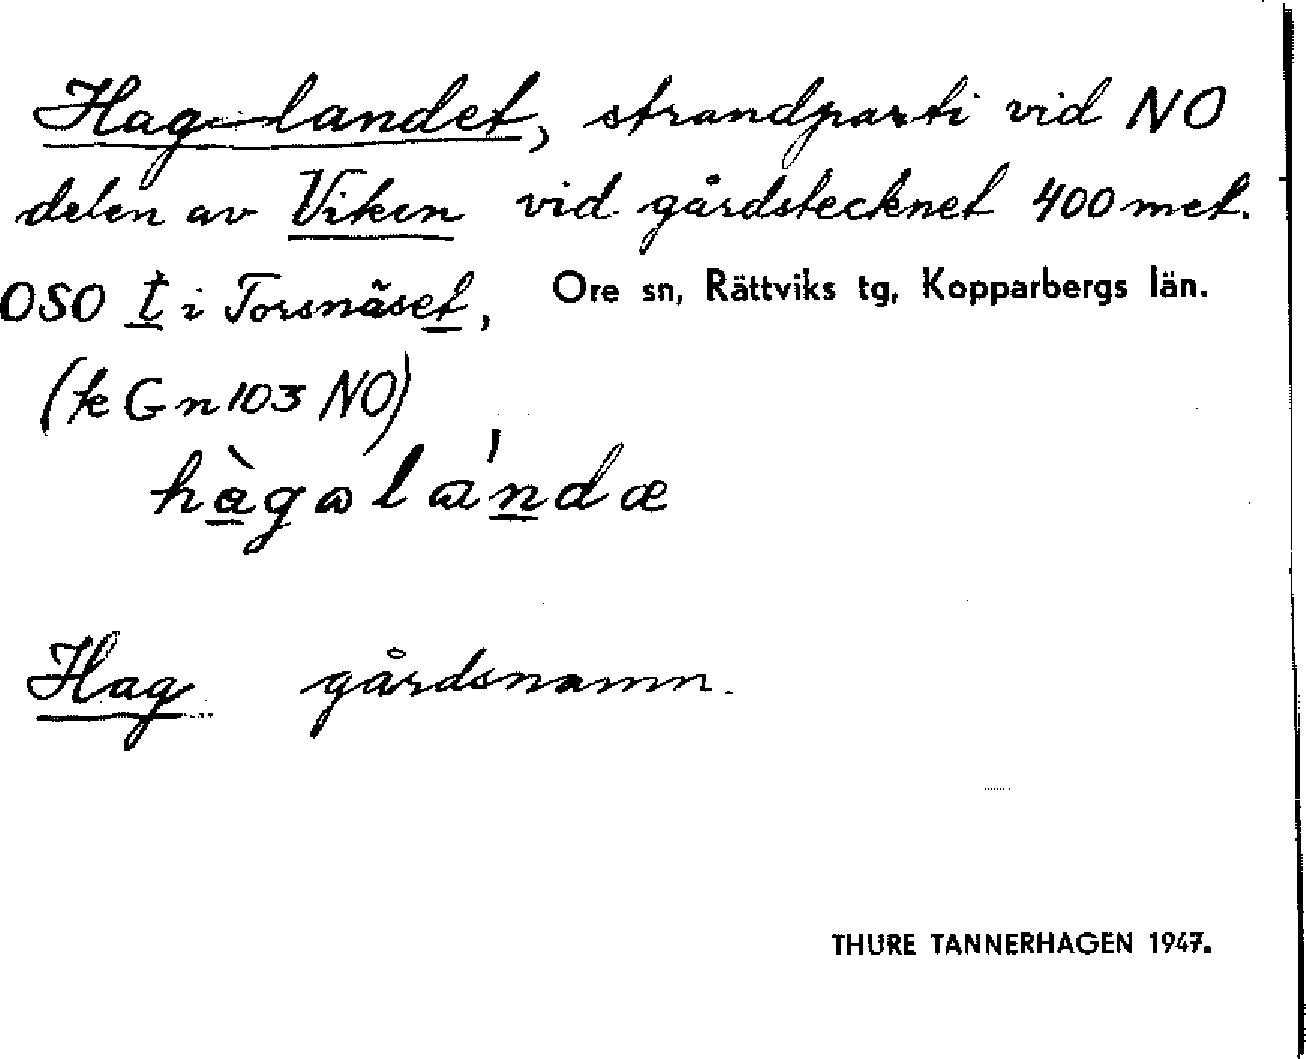 Hag-landet, strandparti vid NO
delen av Viken vid gårdstecknet 400 met.
OSO t i Torsnäset, Ore sn, Rättviks tg, Kopparbergs län.
(te G n 103 NO)
hàgɷlɑ́ndæ
Hag gårdsnamn.
THURE TANNERHAGEN 1947.